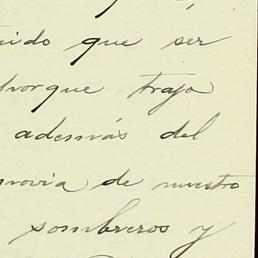 que ser
porque trajo
además del
novia de nuestro
sombreros y